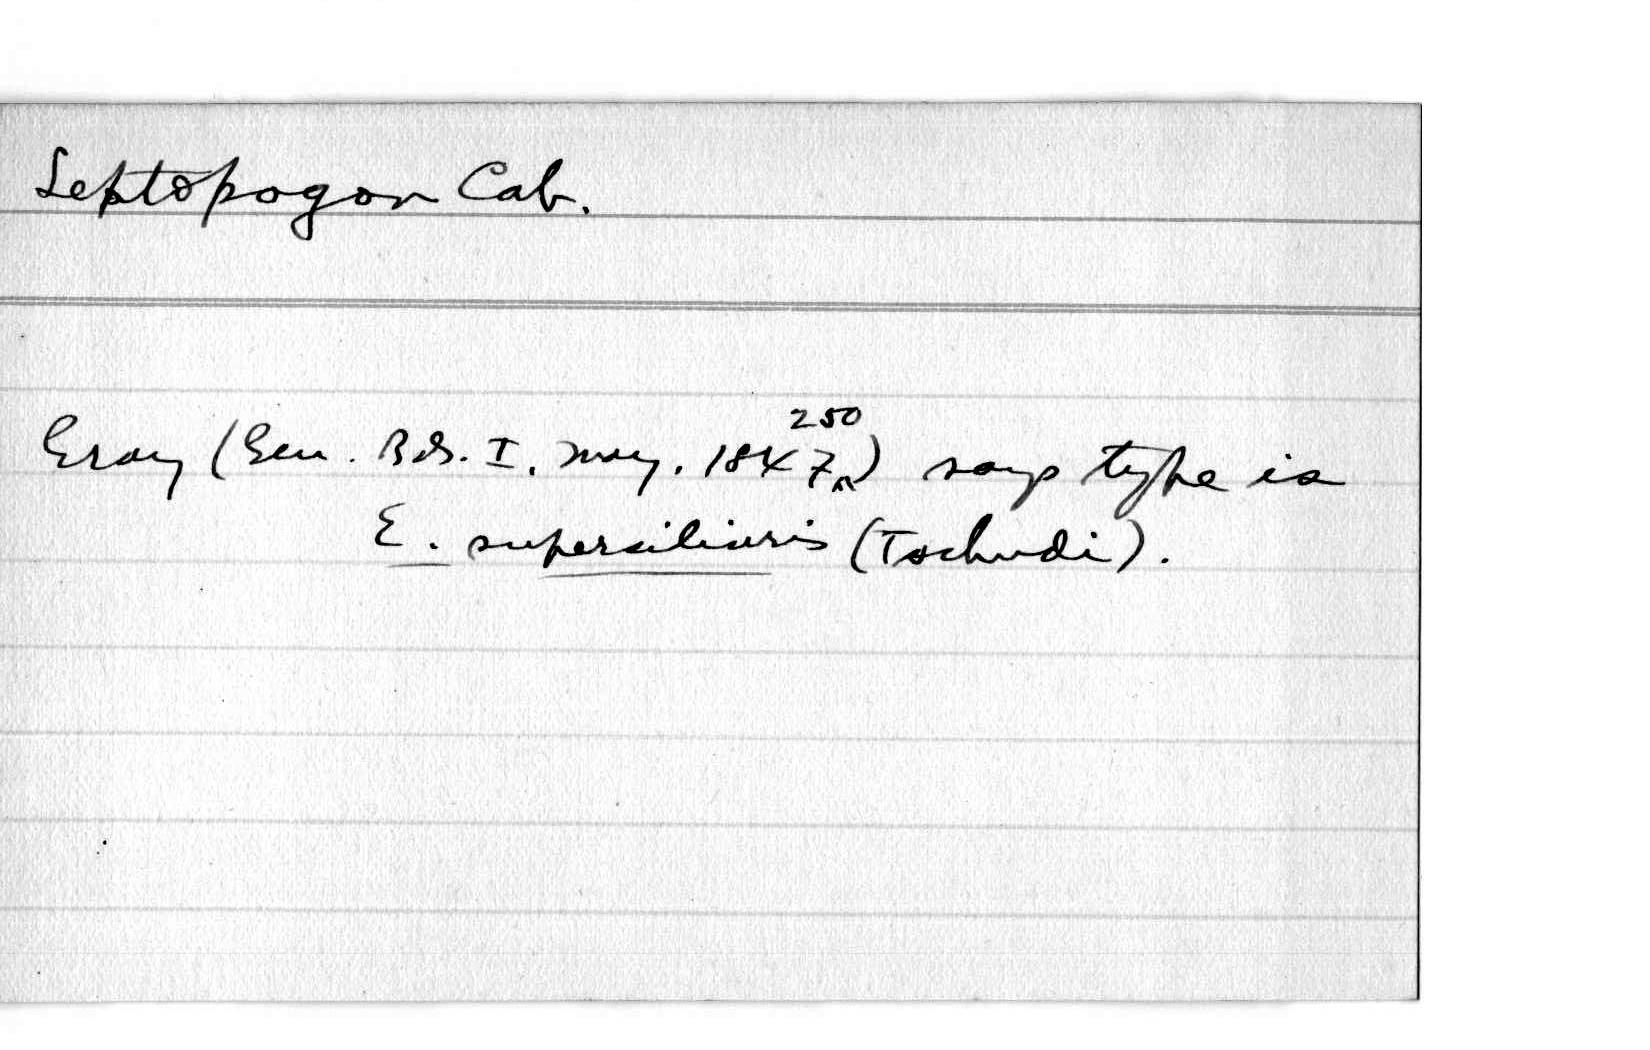 Leptopogon Cab.
250
Gray (Gen. Bds. I. May. 1847,^) says type is
E. supersiliaris (Tschudi).